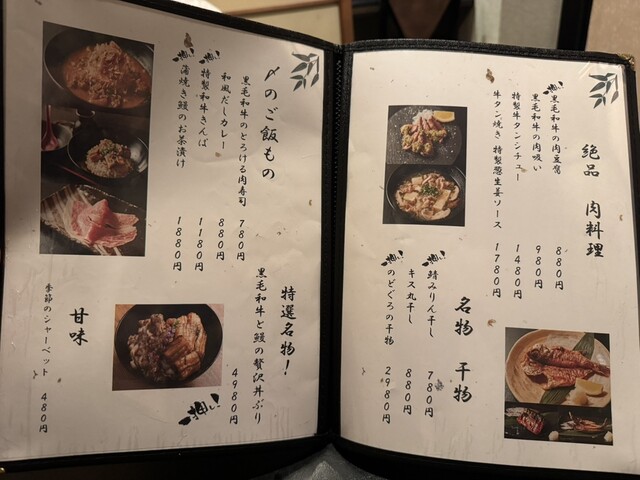 絶品 肉料理
一押し!
黒毛和牛の肉豆腐 880円
黒毛和牛の肉吸い 980円
特製牛タンシチュー 1480円
牛タン焼き 特製葱生姜ソース 1780円
名物 干物
一押し!
鯖みりん干し 780円
キス丸干し 880円
一押し!
のどぐろの干物 2980円
〆のご飯もの
黒毛和牛のとろける肉寿司 780円
和風だしカレー 880円
一押し!
特製和牛きんぱ 1180円
一押し!
蒲焼き鰻のお茶漬け 1880円
特選名物!
黒毛和牛と鰻の贅沢丼ぶり 4980円
一押し!
甘味
季節のシャーベット 480円